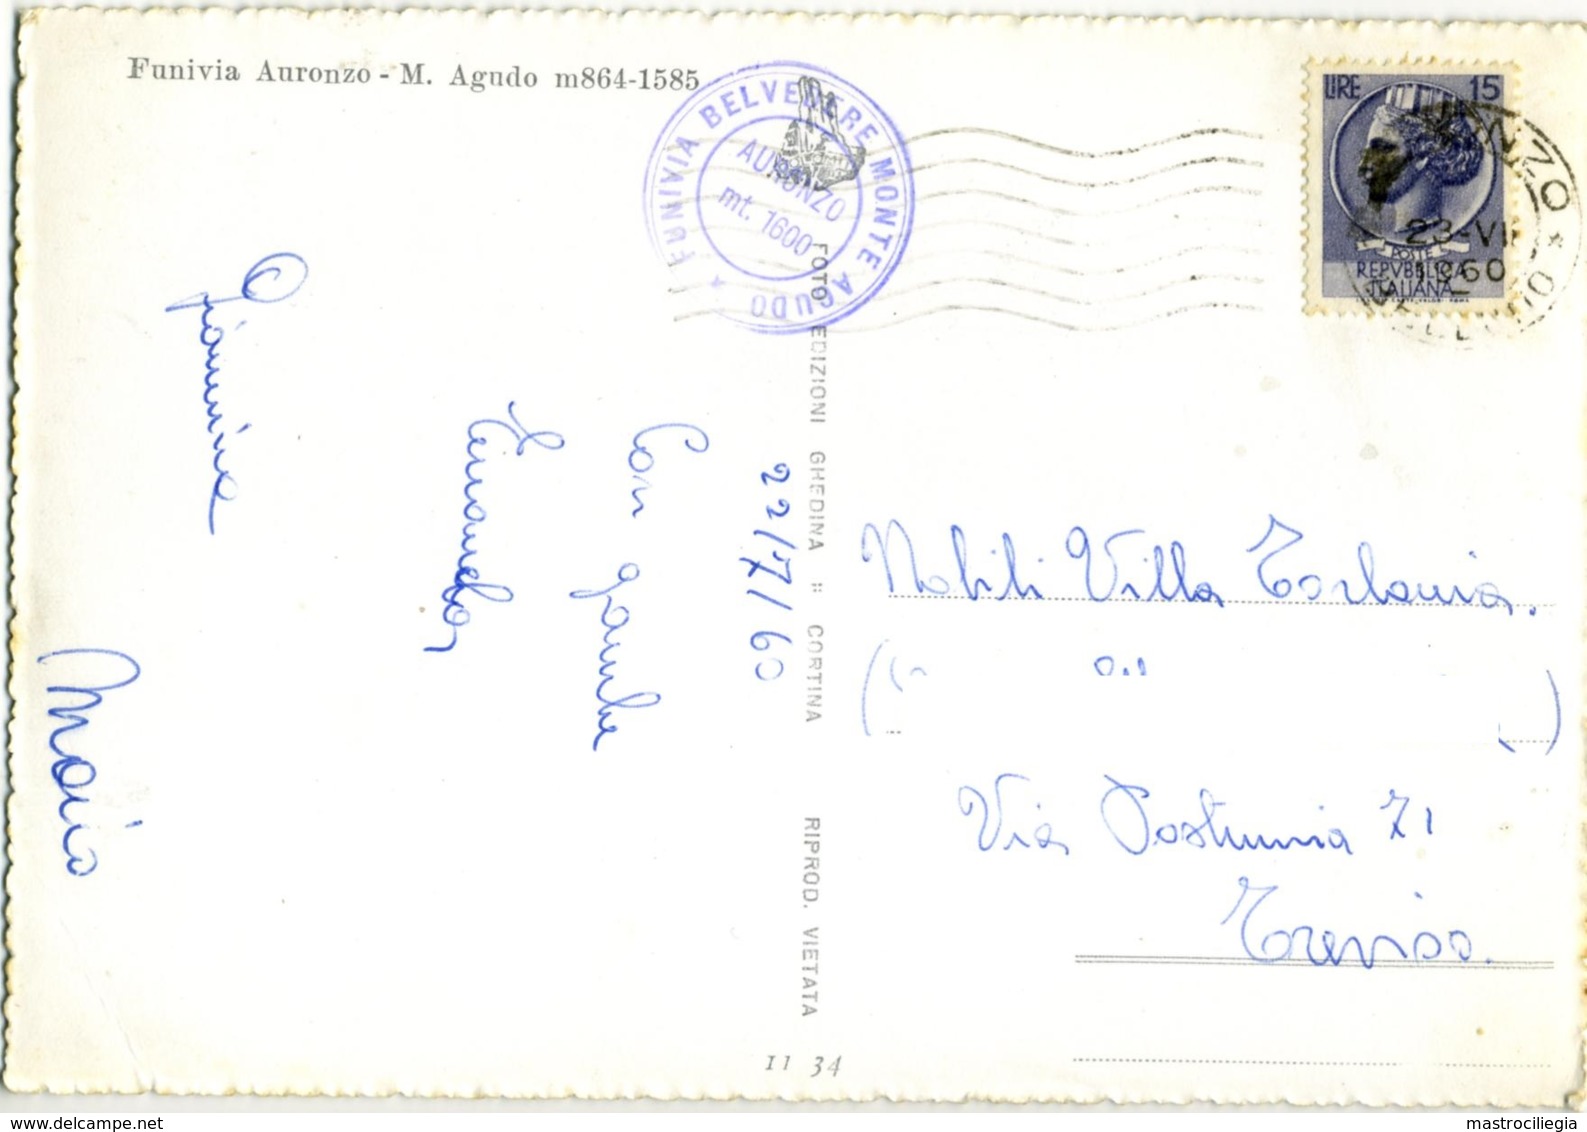 Funivia Auronzo - M. Agudo m864-1585
FUNIVIA BELVEDERE MONTE AGUDO *
AURONZO
mt. 1600
LIRE 15
POSTE
REPVBBLICA
ITALIANA
23-VII
1960
22/7/60
Con gambe
Giannina
Maria
FOTO EDIZIONI GHEDINA :: CORTINA RIPROD. VIETATA
Nobili Villa Torlonia.
Via Postumia 71
Treviso.
11 34
delcampe.net
mastrociliegia